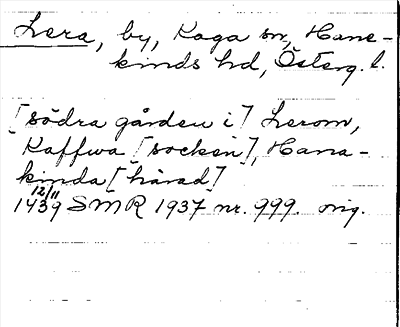 Lera, by, Kaga sn, Hane-
kinds hd, Österg. l.
[södra gården i] Lerom,
Kaffwa [socken], Hana-
kinda [härad]
12/11
1439 SMR 1937 nr. 999. orig.